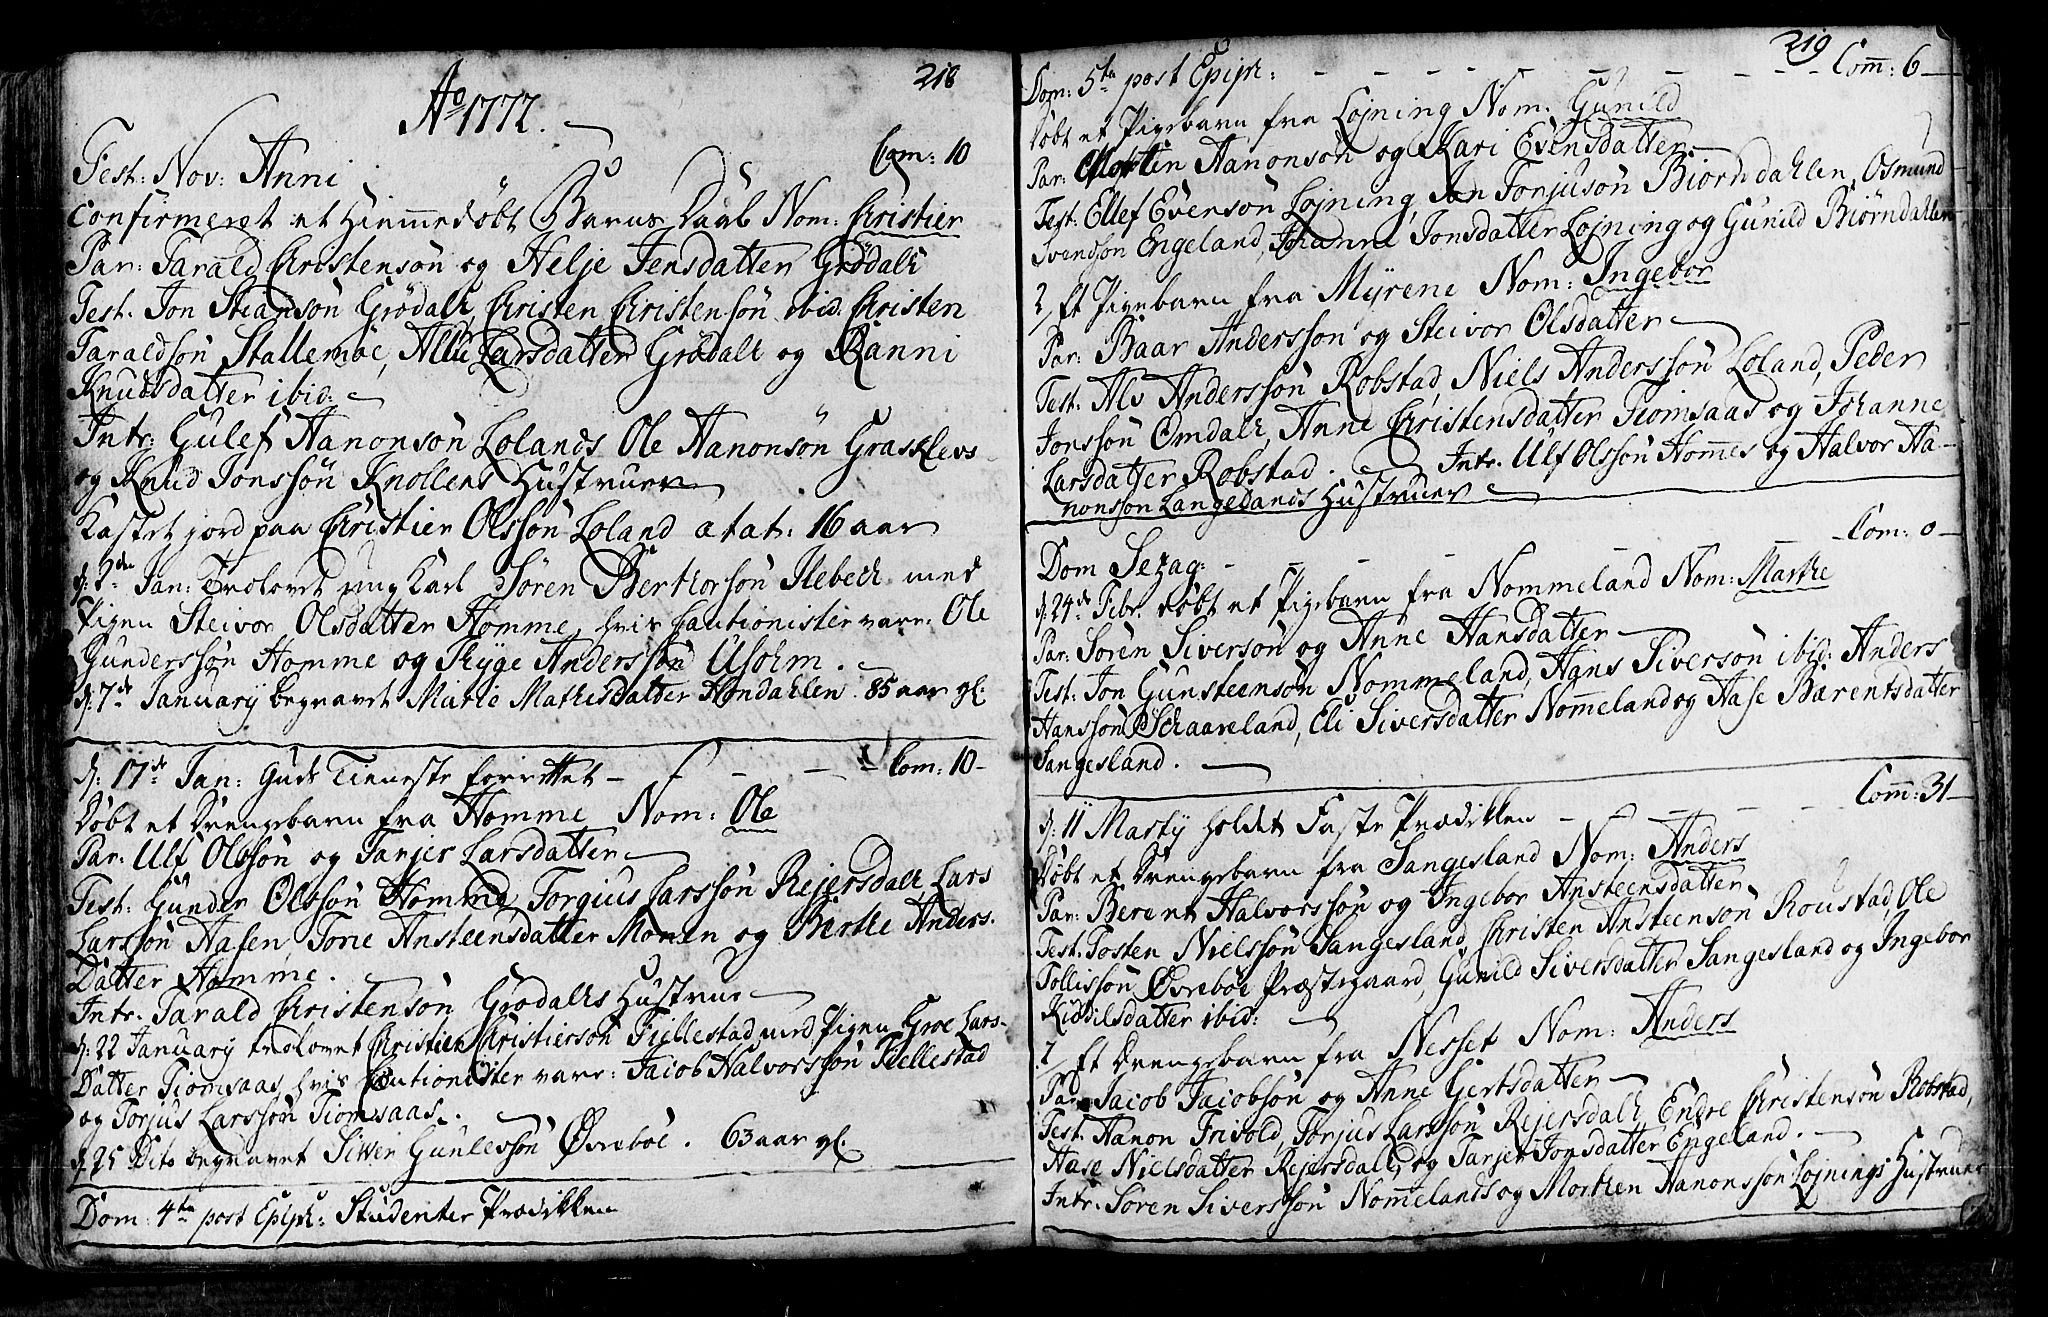 218
Ao 1777.
Fest: Nov: Anni Com: 10
Confirmeret et Hiemmedøbt Barns Daab Nom: Christier
Par: Tarald Christensøn og Helje Jensdatter Grødale
Test. Jon Steansøn Grødale, Christen Christensøn ibid. Christen
Taraldsøn Stallemoe, Larsdatter Grødale og Ranni
Knudsdatter ibid:
Intr: Gulef Aanonsøn Lolands Ole Aanonsøn Grasklevs
og Knud Jonssøn Knollens Hustruer
Kastet jord paa Christier Olssøn Loland ætat: 16 aar
d: 2den Jan: Trolovet ung Karl Søren Berthorsøn Ilebech med
Pigen Steivor Olsdatter Homme, hvis Cautionister vare: Ole
Gunderssøn Homme og Thyge Anderssøn Usohm.
d: 7de January begravet Marte Mathisdatter Hondahlen 85 aar gl:
d: 17de Jan: Guds Tieneste forrettet Com: 10
Døbt et Drengebarn fra Homme Nom: Ole
Par: Ulf Olssøn og Tarjer Larsdatter
Test: Gunder Olssøn Homme, Torgius Larssøn Rejersdale Lars
Larssøn Aasen, Torie Ansteensdatter Monen og Birthe Anders-
Datter Homme.
Intr. Tarald Christensøn Grødales Hustrue
d: 22 January trolovet Christen Christiersøn Fiellestad med Pigen Groe Lars-
Datter Tiomsaas, hvis Cautionister vare: Jacob Halvorssøn Fiellestad
og Torjus Larssøn Tiomsaas.
d. 25 Dito begravet Siver Gunlessøn Øvreboe. 63 aar gl.
Dom: 4ta post Epiph: Studenter Prædikken
219
Dom: 5ta post Epiph: Com: 6
Døbt et Pigebarn fra Lojning Nom: Gunild
Par: Morten Aanonsøn og Kari Evensdatter
Test: Ellef Evensøn Lojning, Jon Torjusøn Biørndahlen, Osmund
Svendsøn Engeland, Johanne Jonsdatter Lojning og Gunild Biørndahlen
2/ Et Pigebarn fra Myrene Nom: Ingebor
Par: Baar Anderssøn og Steivor Olsdatter
Test: Alv Anderssøn Robstad, Niels Anderssøn Loland, Peder
Jonssøn Omdale, Anne Christensdatter Tiomsaas og Johanne
Larsdatter Robstad. Intr. Ulf Olssøn Hommes og Halvor Aa-
nonssøn Langelands Hustruer
Dom Sexag: Com: 0
d. 24de Febr. døbt et Pigebarn fra Nommeland Nom: Marthe
Par: Søren Siversøn og Anne Hansdatter
Test: Jon Gunsteensøn Nommeland, Hans Siversøn ibid: Anders
Hanssøn Schaareland, Eli Siversdatter Nomeland og Aase Bærentsdatter
Sangesland.
d: 11 Marty holdet Faste Prædikken Com: 31
Døbt et Drengebarn fra Sangesland Nom: Anders
Par: Berent Halvorssøn og Ingebor Ansteensdatter
Test: Tosten Nielssøn Sangesland, Christen Ansteensøn Roustad, Ole
Tollissøn Øvreboe Præstegaard, Gunild Siversdatter Sangesland og Ingebor
Kiddilsdatter ibid:
2/ Et Drengebarn fra Nesset Nom: Anders
Par. Jacob Jacobsøn og Anne Gertsdatter
Test. Aanon Frivold, Torjus Larssøn Rejersdale, Endre Christensøn Robstad,
Aase Nielsdatter Rejersdale, og Tarjer Jonsdatter Engeland.
Intr. Søren Siverssøn Nomelands og Morthen Aanonssøn Lojnings Hustruer